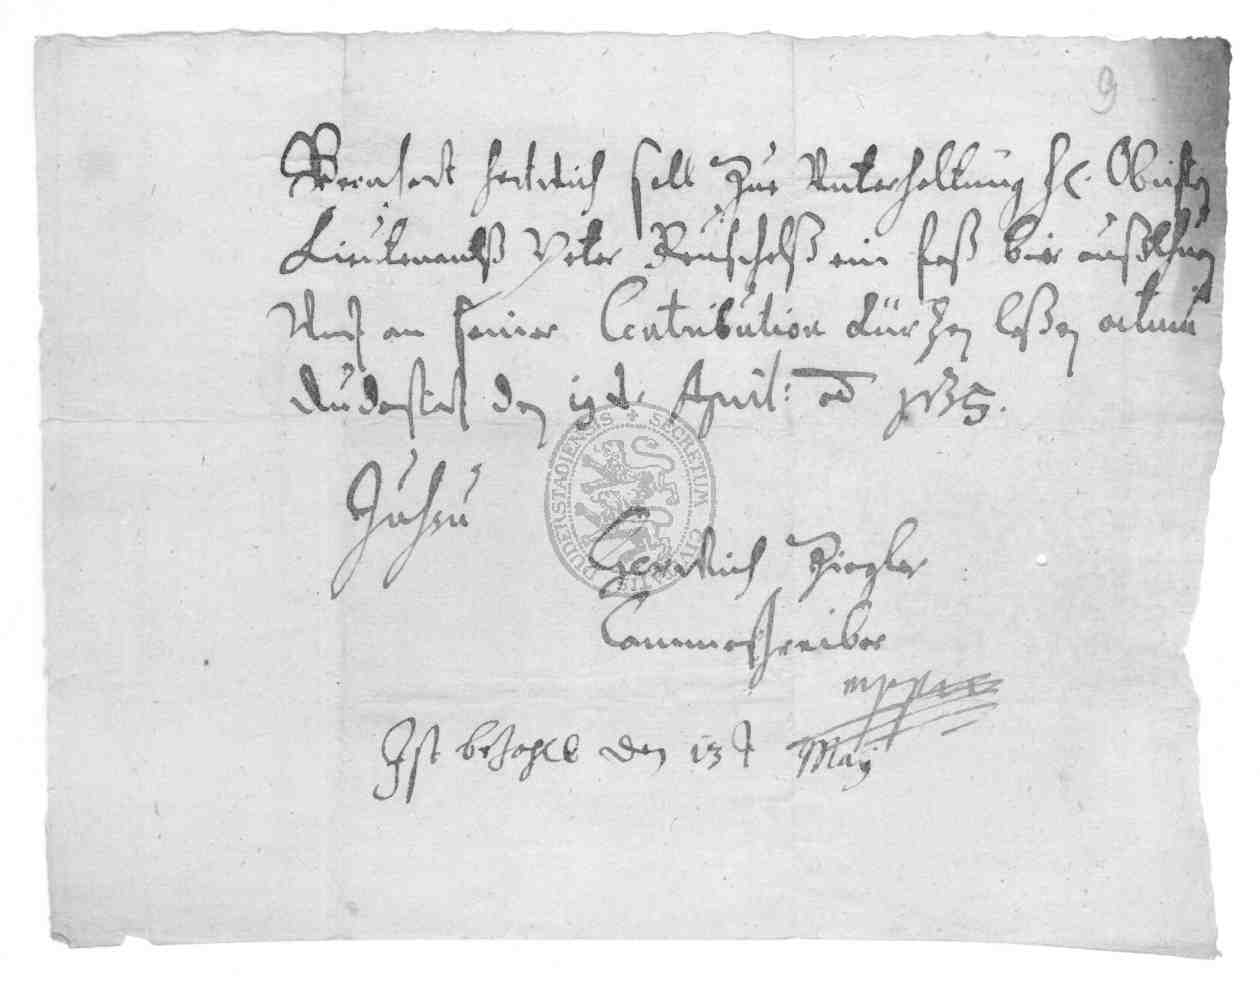 9
Bernhart Hertwich soll Zue Unterhaltung H. Obristen
Lieutenantß Peter Reuschelß ein faß bier außthuen
Und an seiner Contribution Kürtzen laßen actum
Duderstat den april: ad 1635.
Hertwich Ziegler
Cammerschreiber
mpp
Ist bezahlt den 13 t May
SECRETUM CIVITATIS DUDERSTADIENSIS